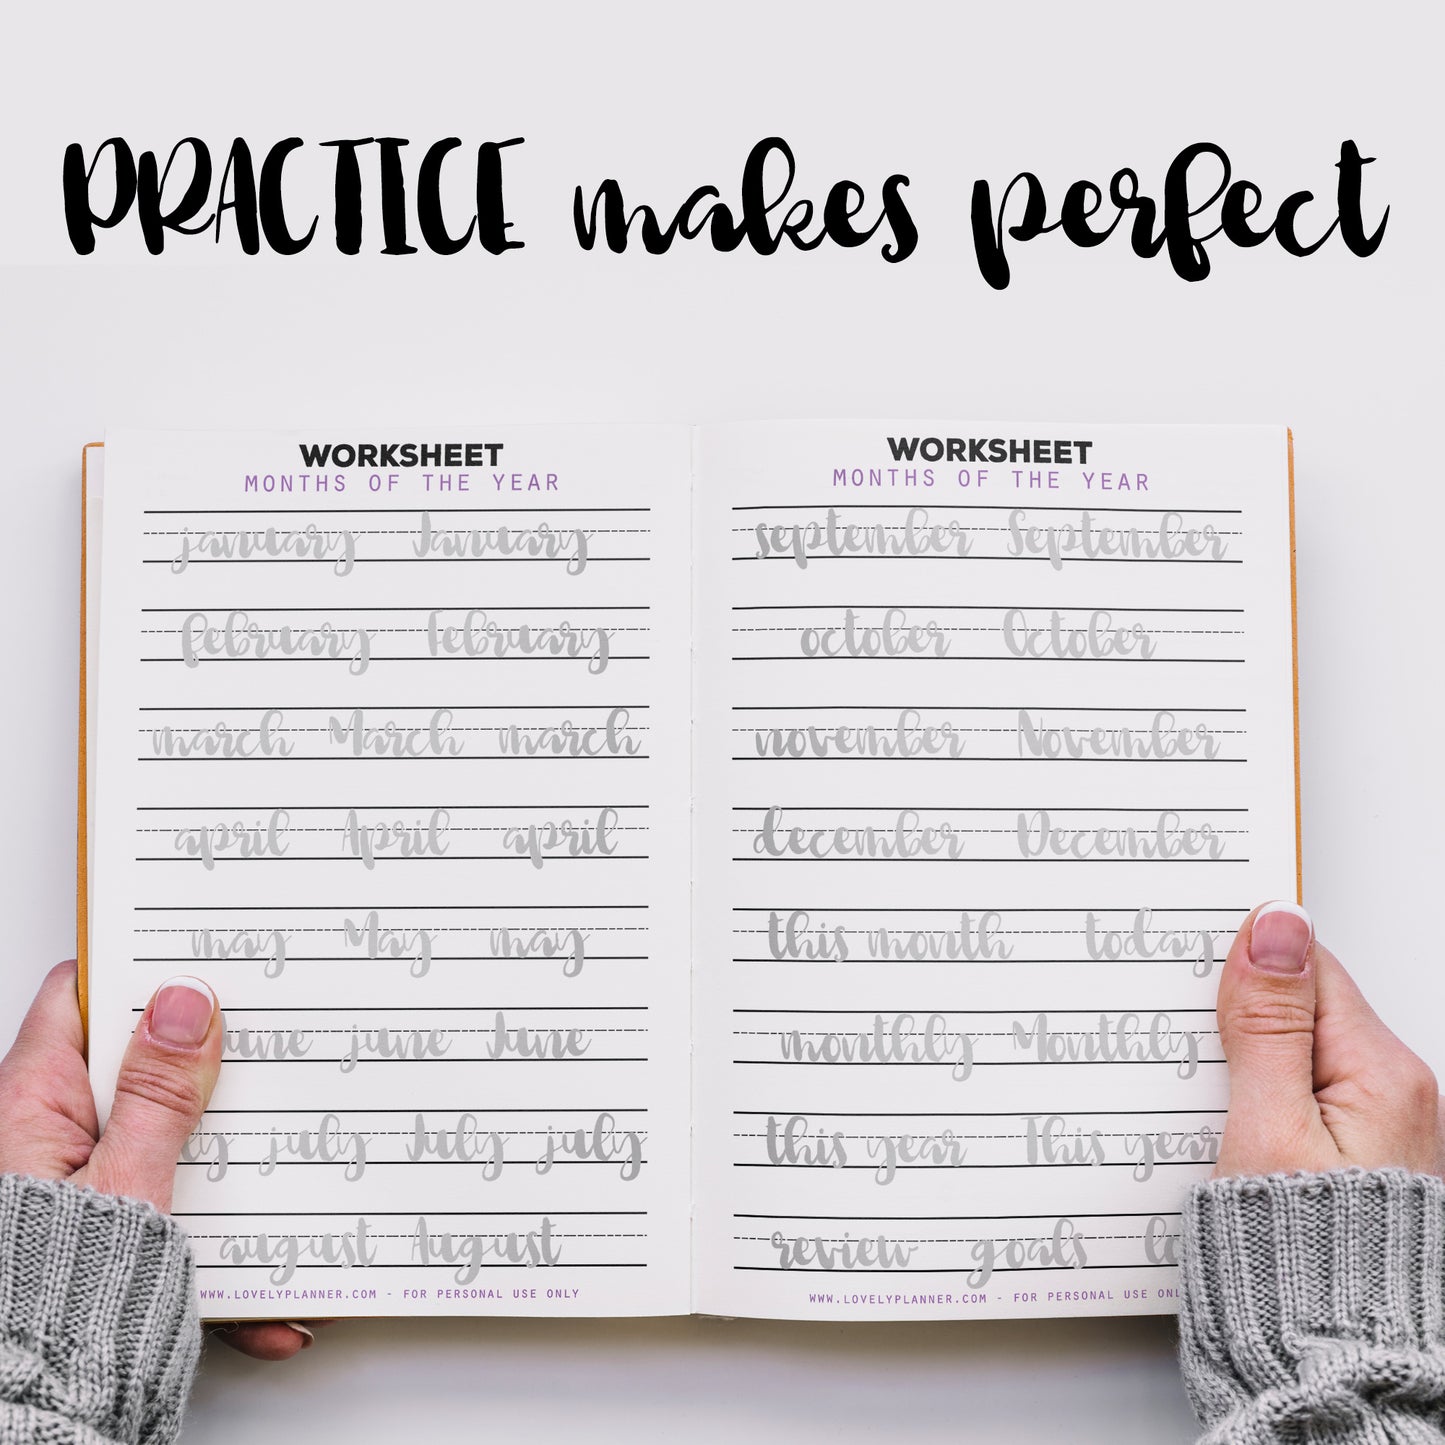 PRACTICE makes perfect
WORKSHEET
MONTHS OF THE YEAR
january January
february February
march March march
april April april
may May may
june June
july July july
august August
WWW.LOVELYPLANNER.COM - FOR PERSONAL USE ONLY
WORKSHEET
MONTHS OF THE YEAR
september September
october October
november November
december December
this month today
monthly Monthly
this year This year
review goals
WWW.LOVELYPLANNER.COM - FOR PERSONAL USE